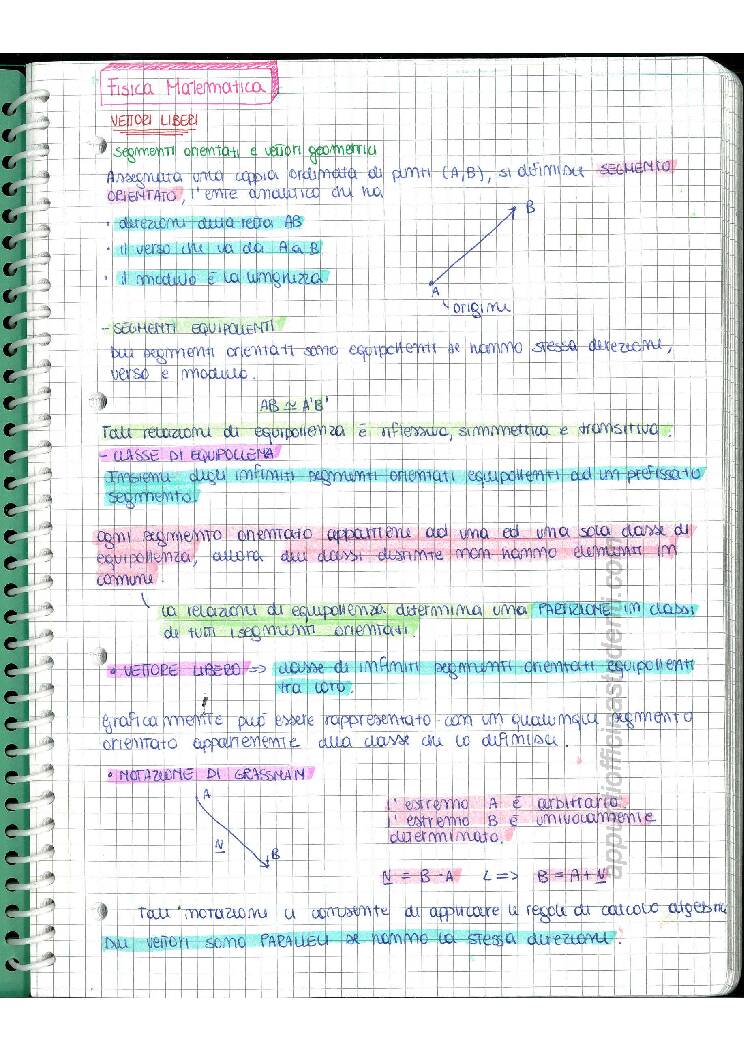 Fisica Matematica
VETTORI LIBERI
segmenti orientati e vettori geometrici
Assegnata una coppia ordinata di punti (A,B), si definisce SEGMENTO
ORIENTATO, l'ente analitico che ha
· direzione della retta AB
· il verso che va da A a B
· il modulo è la lunghezza
B
A
origine
- SEGMENTI EQUIPOLLENTI
Due segmenti orientati sono equipollenti se hanno stessa direzione,
verso e modulo.
AB ≃ A'B'
Tale relazione di equipollenza è riflessiva, simmetrica e transitiva.
- CLASSE DI EQUIPOLLENZA
Insieme degli infiniti segmenti orientati equipollenti ad un prefissato
segmento.
ogni segmento orientato appartiene ad una ed una sola classe di
equipollenza, allora due classi distinte non hanno elementi in
comune
la relazione di equipollenza determina una PARTIZIONE in classi
di tutti i segmenti orientati.
• VETTORE LIBERO => classe di infiniti segmenti orientati equipollenti
tra loro.
Graficamente può essere rappresentato con un qualunque segmento
orientato appartenente alla classe che lo definisce.
• NOTAZIONE DI GRASSMAN
A
N
B
l'estremo A è arbitrario
l'estremo B è univocamente
determinato.
N = B-A <=> B = A + N
Tale notazione ci consente di applicare le regole di calcolo algebri
Due vettori sono PARALLELI se hanno la stessa direzione.
appuntiofficinastudenti.com